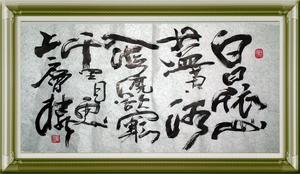 白日依山
盡黄河
入海流欲窮
千里目更
上一層樓